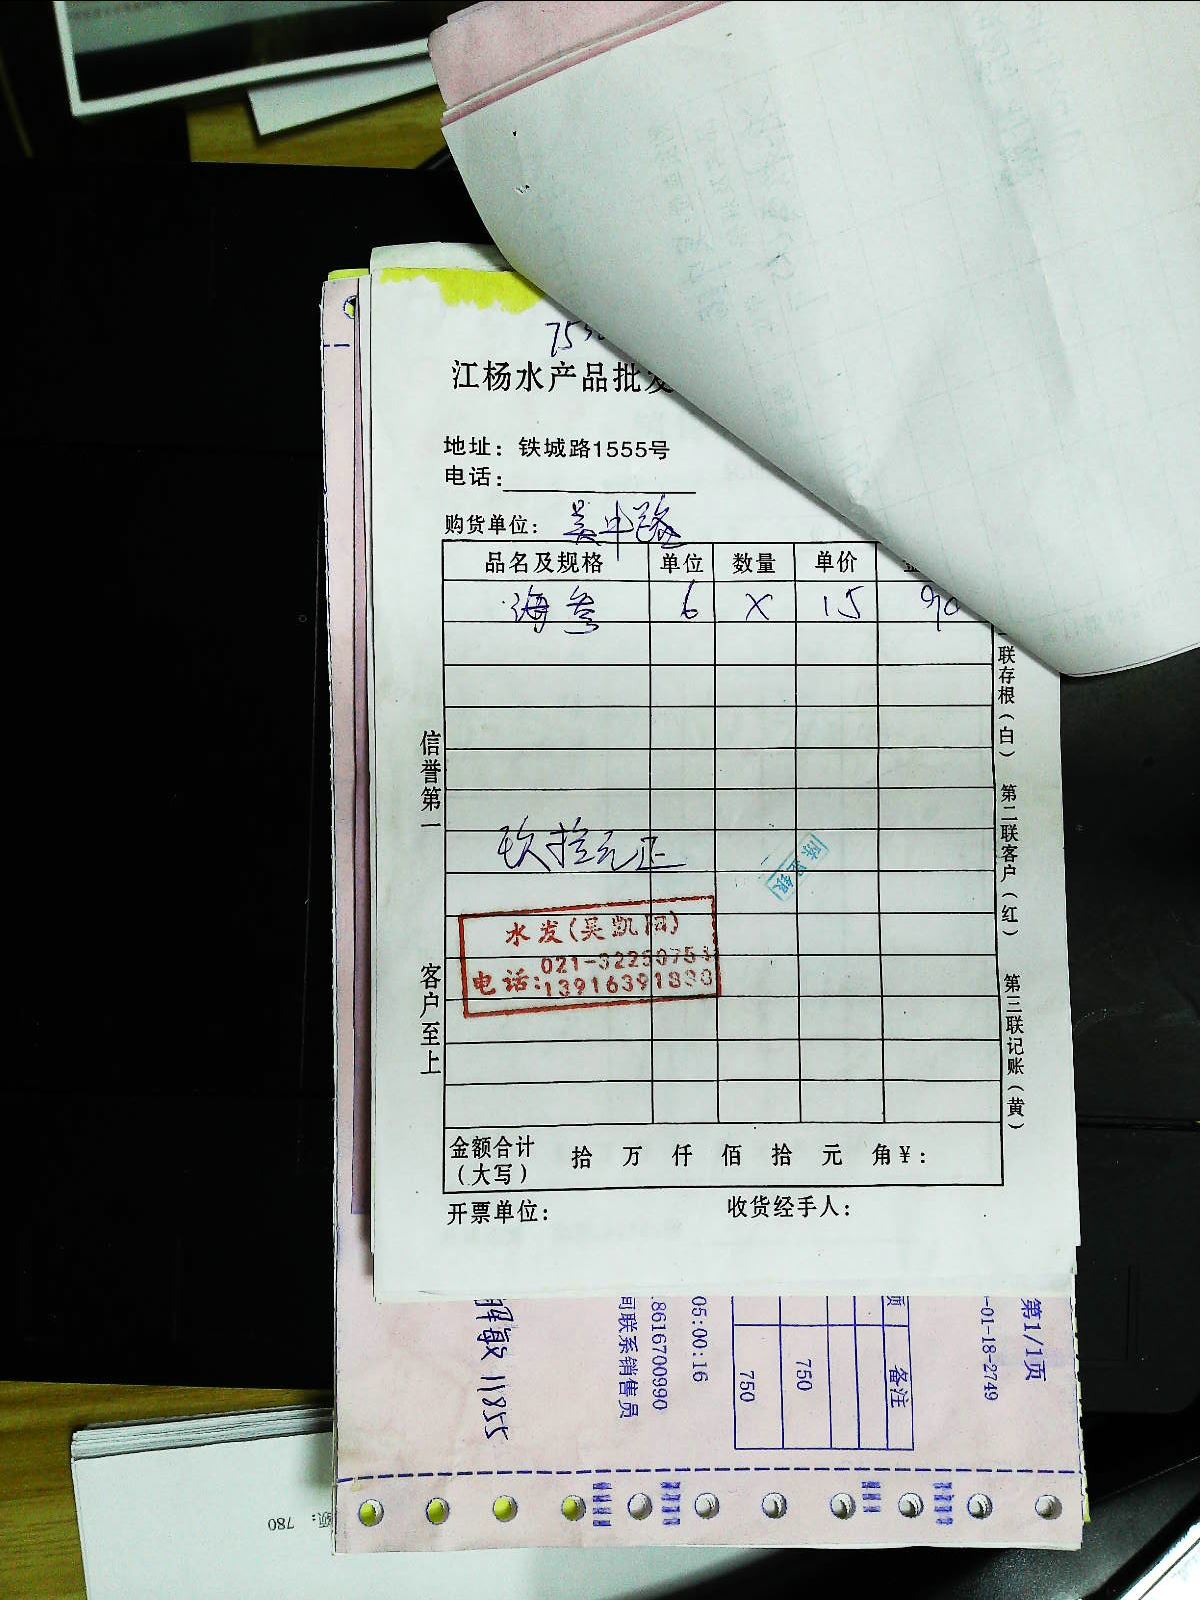 江杨水产品批发
地址：铁城路1555号
电话：
购货单位：吴中路
品名及规格 单位 数量 单价
海参 6 X 15 90
联存根（白） 第二联客户（红） 第三联记账（黄）
信誉第一
客户至上
玖拾元正
水发(吴凯
电话:021-322
13916391838
金额合计（大写） 拾 万 仟 佰 拾 元 角 ¥：
开票单位： 收货经手人：
第1/1页
-01-18-2749
备注
750
750
05:00:16
18616700990
司联系销售员
敏 11855
额：780